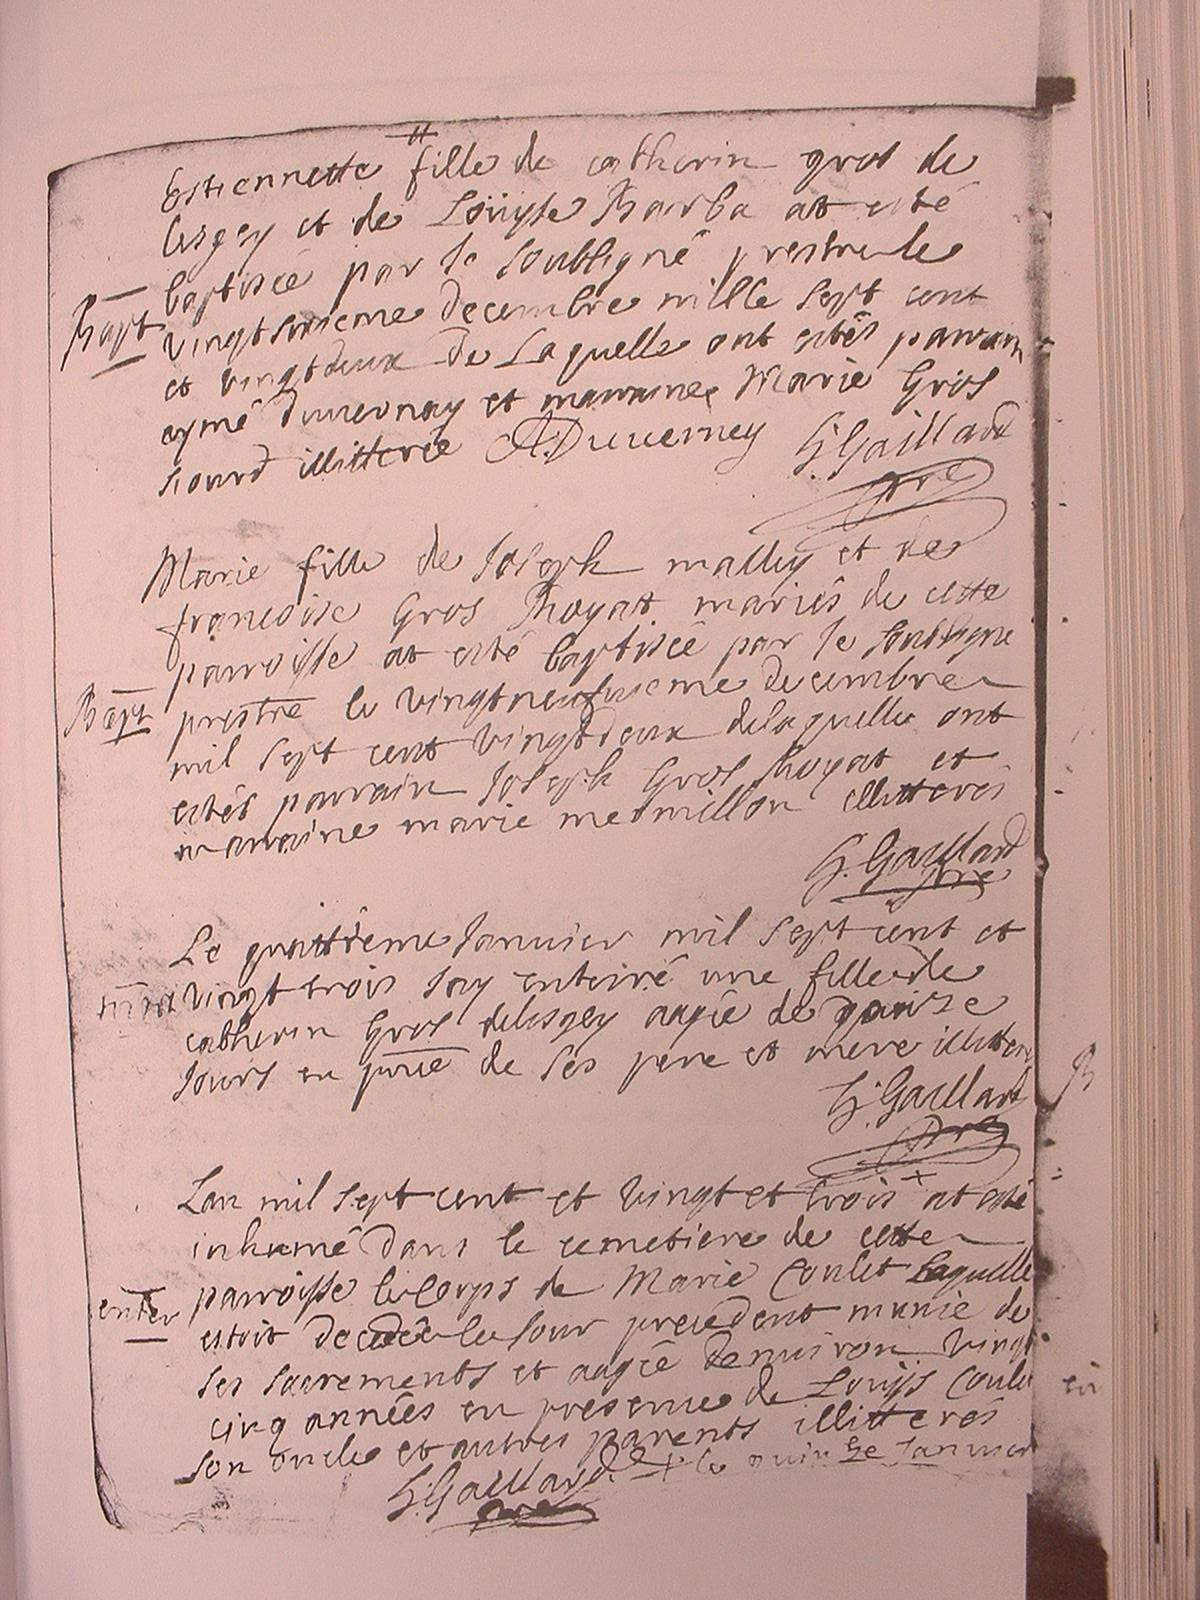 Estiennette fille de catherin gros de
Lisgey et de Loüyse Barba at esté
baptisée par le soubsigné prestre le
Bapt vingtsixieme decembre mille sept cent
et vingtdeux de Laquelle ont estés parrain
aymé duuernay et marraine Marie Gros
sourd illitterée A Duuerney h: Gaillard
pre
Marie fille de Joseph malley et de
francoise Gros Thoyat mariés de cette
parroisse at esté baptisée par le soubsigne
Bapt prestre le vingtneufuieme decembre
mil sept cent vingtdeux delaquelle ont
estés parrain Joseph Gros Thoyat et
marraine marie mermillon illitteres
h. Gaillard
pre
Le quattrieme Januier mil sept cent et
vingt trois Jay enterré une fille de
catherin Gros delisgey aagée de quinze
Jours en pnce de ses pere et mere illitteres
h: Gaillard
pre
Lan mil sept cent et vingt et trois + at esté
inhumé dans le cemetiere de cette
enter parroisse le Corps de Marie Coulet laquelle
estoit decedée le Jour precedent munie de
ses sacrements et aagée denuiron vingt
cinq années en presence de Louÿs Coulet
son oncle et autres parents illitterés
h: Gaillard + le quinze Januier
pre